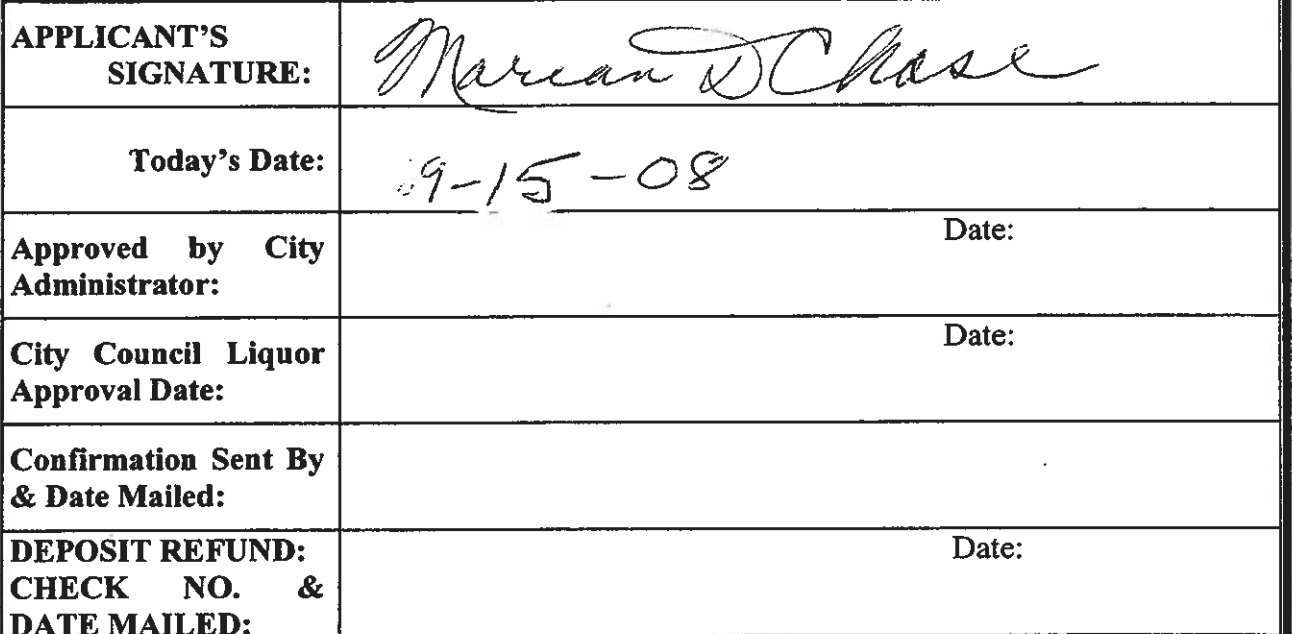 APPLICANT'S
SIGNATURE:
Marian D Chase
Today's Date:
09-15-08
Approved by City
Administrator:
Date:
City Council Liquor
Approval Date:
Date:
Confirmation Sent By
& Date Mailed:
DEPOSIT REFUND:
CHECK NO. &
DATE MAILED:
Date: